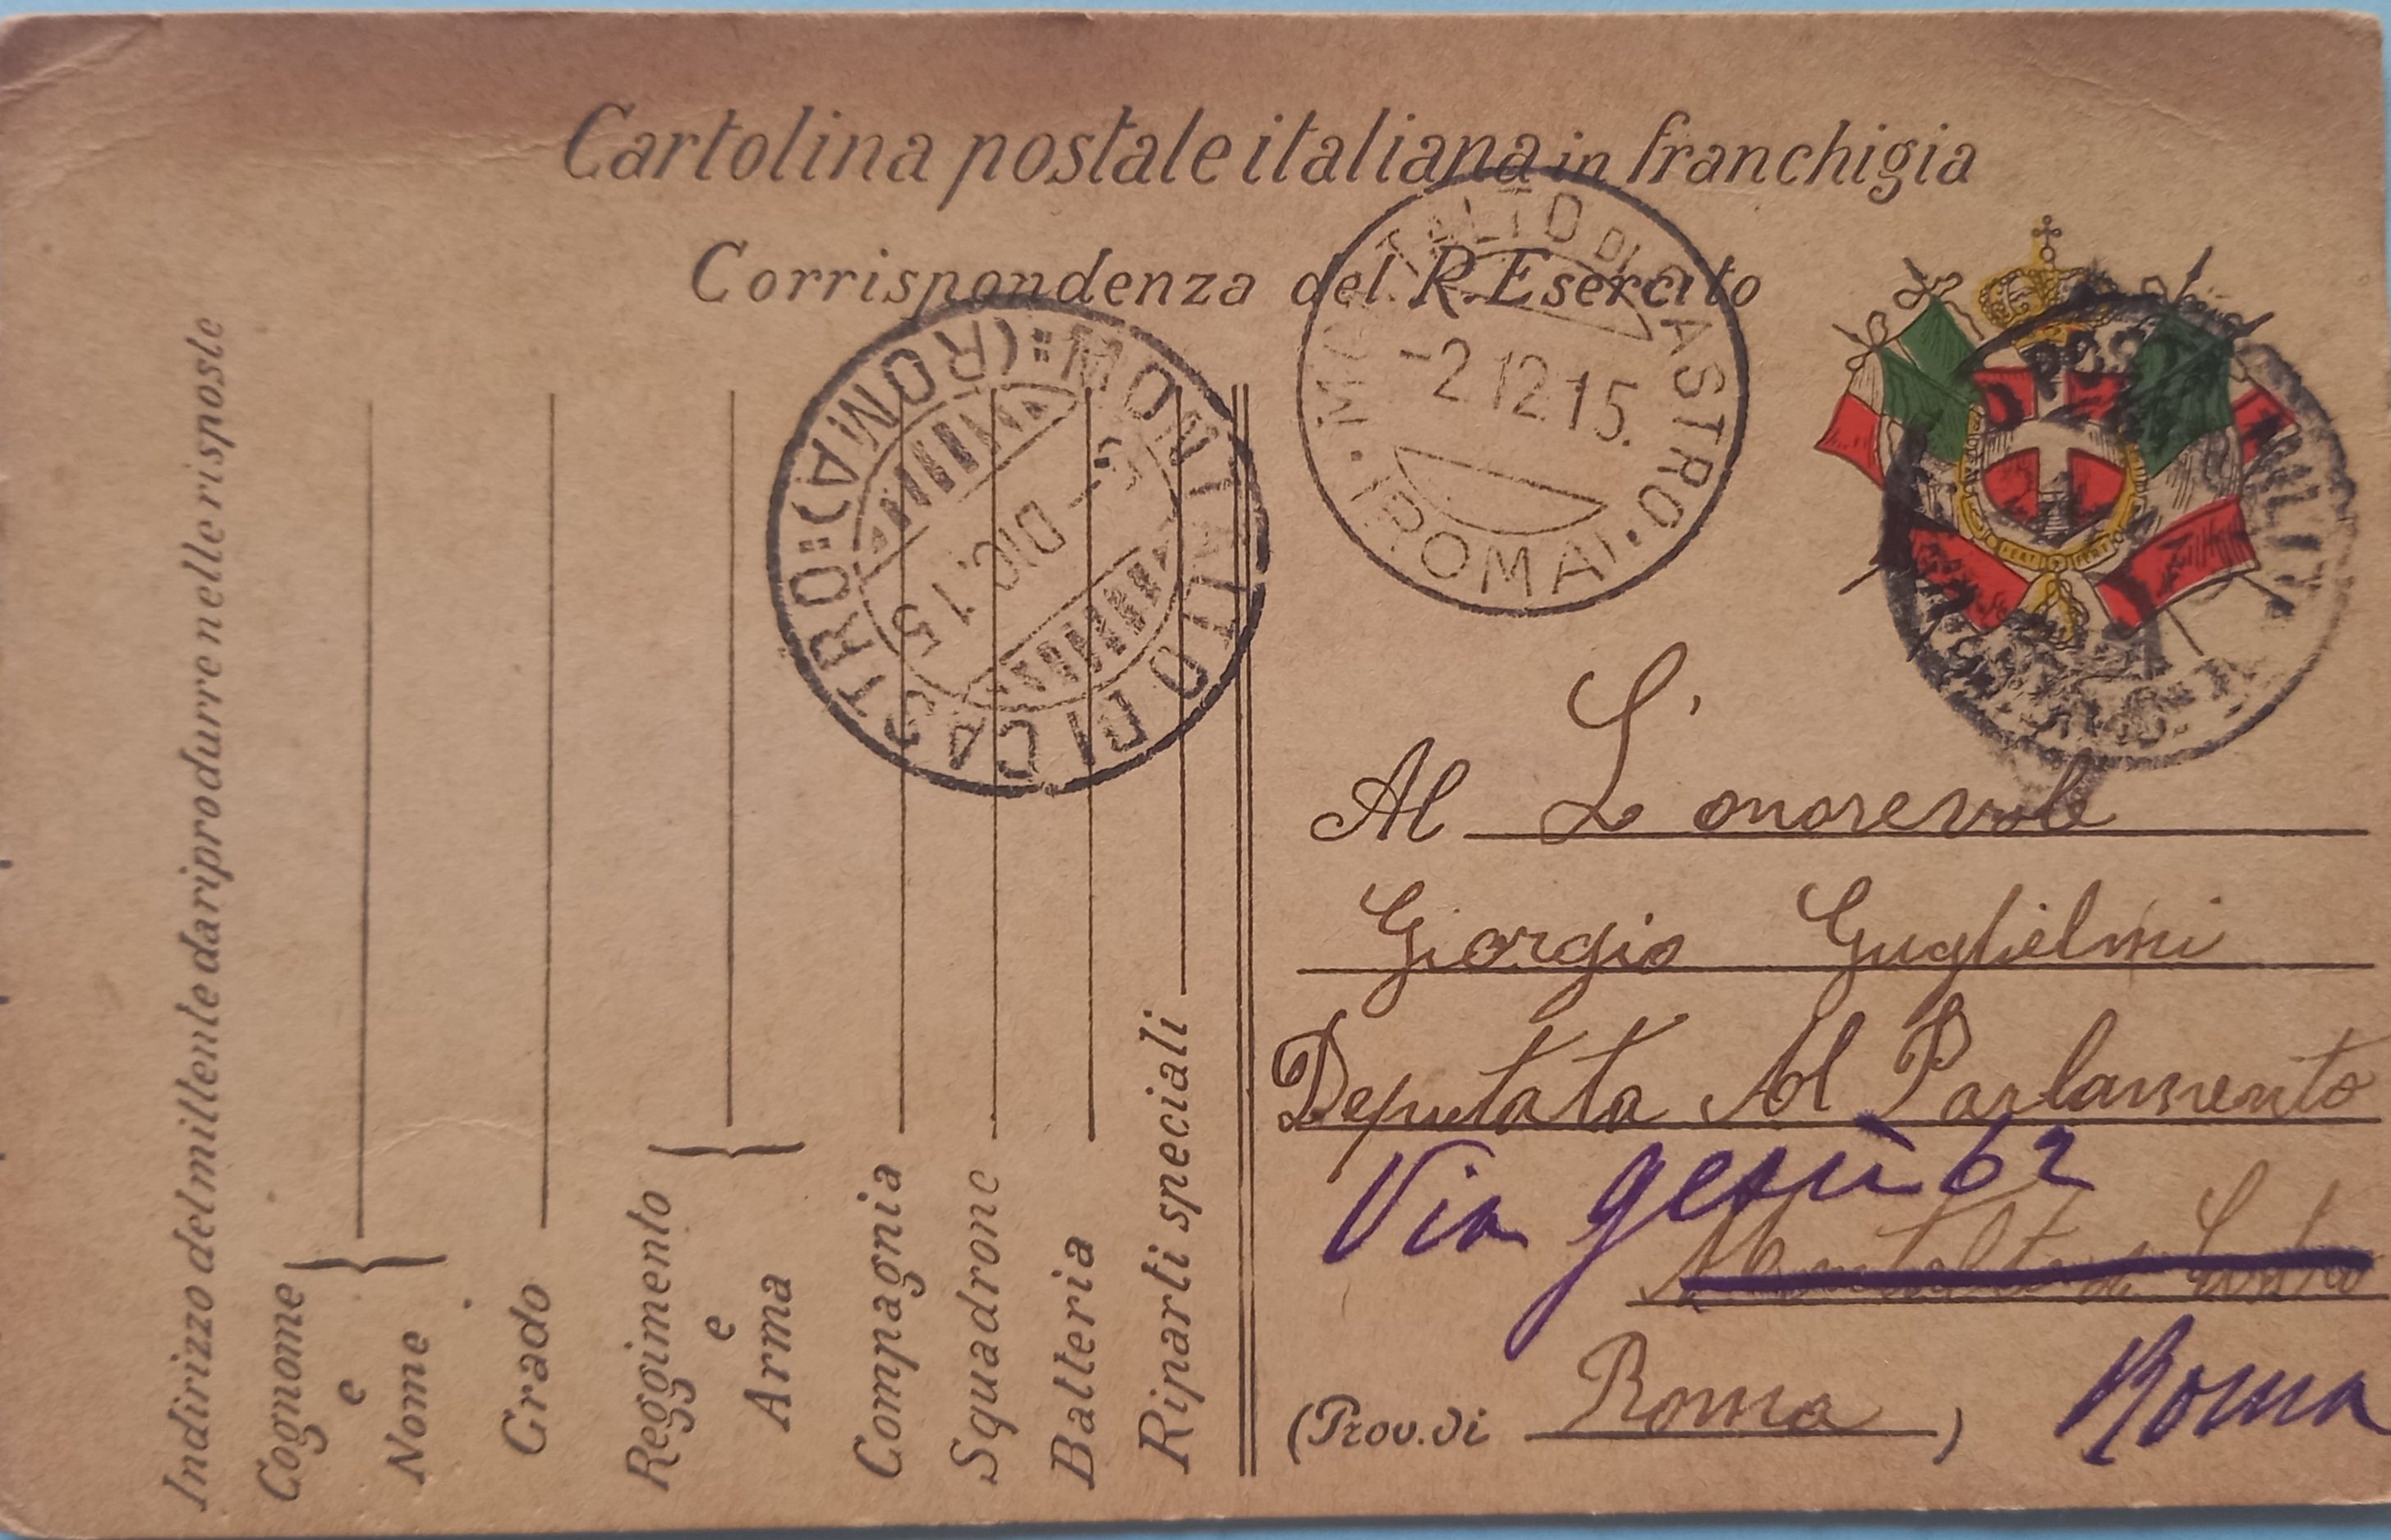 Cartolina postale italiana in franchigia
Corrispondenza del R. Esercito
Indirizzo del mittente da riprodurre nelle risposte
Cognome
e
Nome
Grado
Reggimento
e
Arma
Compagnia
Squadrone
Batteria
Riparti speciali
MONTALTO DI CASTRO (ROMA)
3 - DIC. 15
MONTALTO DI CASTRO
-2 12 15.
(ROMA)
POSTA MILIT
FERT FERT
Al L' onorevole
Giorgio Guglielmi
Deputato Al Parlamento
Via gesù 62
Montalto di Castro
(Prov. di Roma) Roma